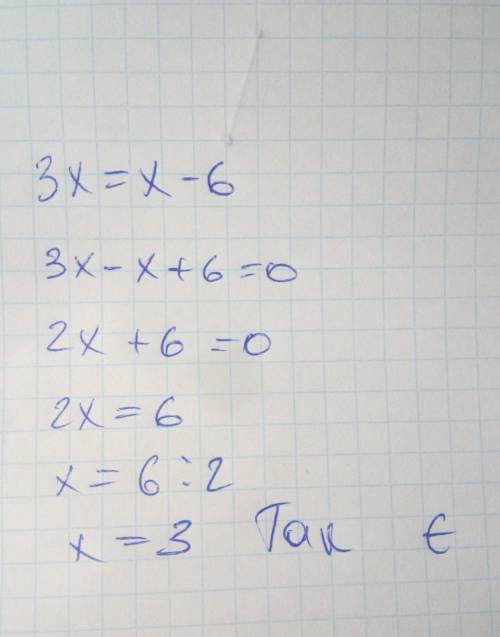 3x=x-6
3x-x+6=0
2x+6=0
2x=6
x=6:2
x=3 Так є